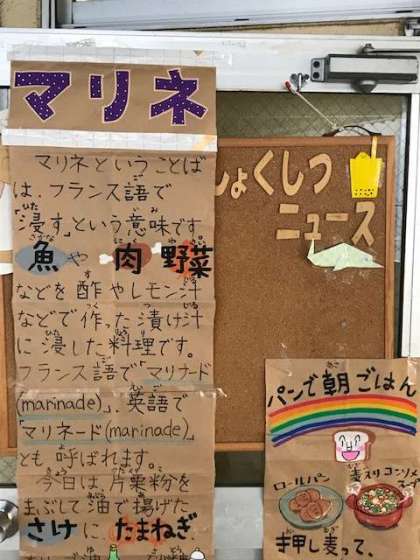 マリネ
マリネということば
は、フランス語で
「浸す」という意味です
魚や肉野菜
などを酢やレモン汁
などで作った漬け汁
に浸した料理です。
フランス語で「マリナード
(marinade)」、英語で
「マリネード(marinade)」
とも呼ばれます。
今日は、片栗粉を
まぶして油で揚げた
さけに、たまねぎ、
しょくしつ
ニュース
パンで朝ごはん
ロールパン
麦入りコンソメ
スープ
押し麦って、